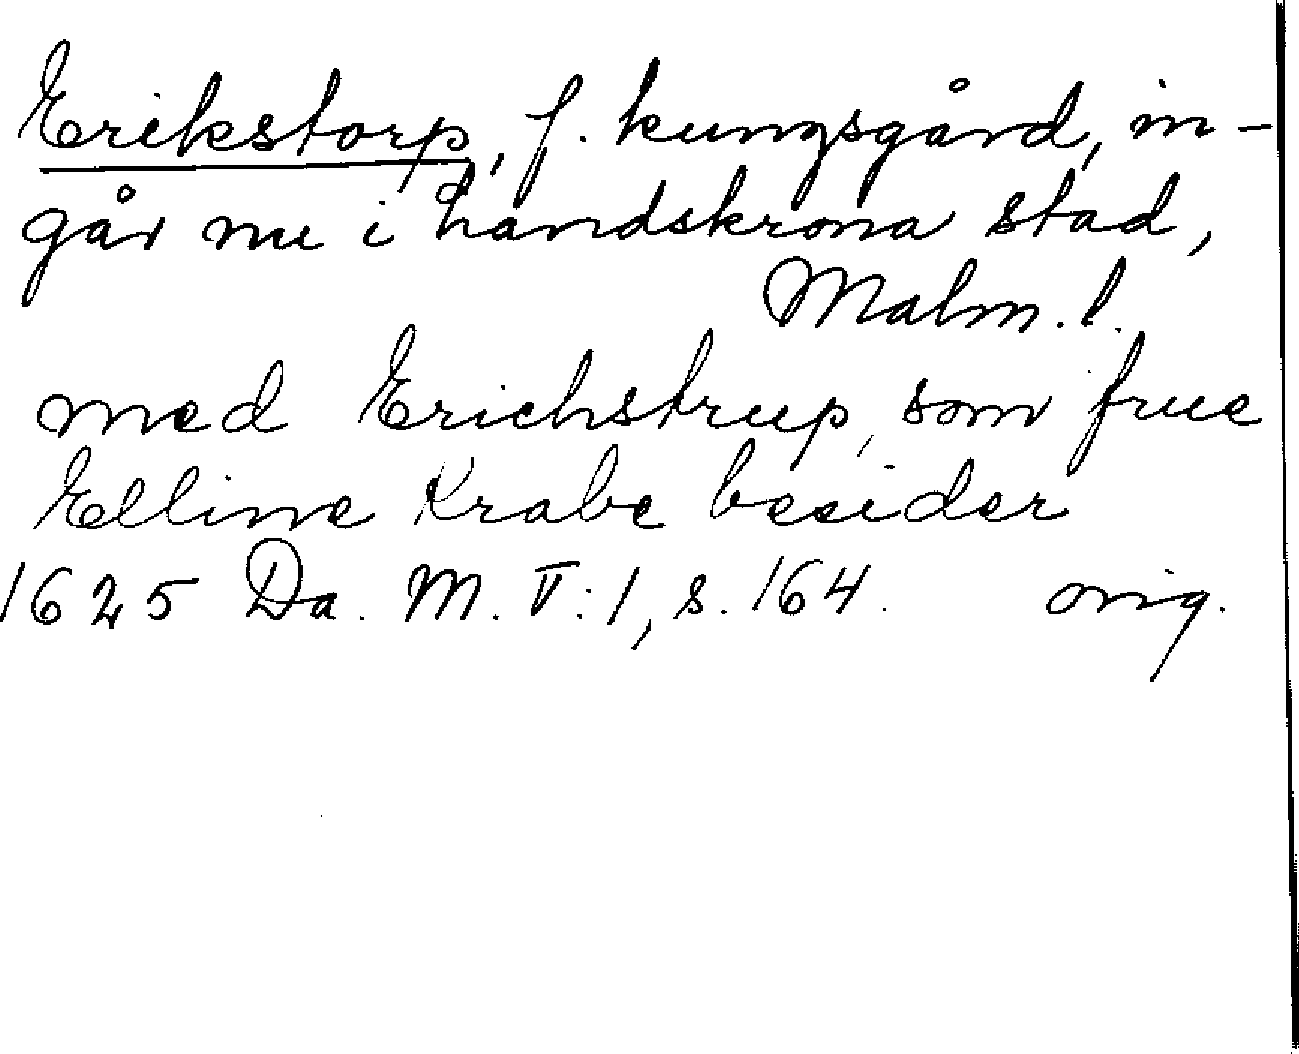 Erikstorp, f. kungsgård, in-
går nu i Landskrona stad,
Malm. l.
med Erichstrup, som frue
Elline Krabe besider
1625 Da. M. V:1, s. 164. orig.